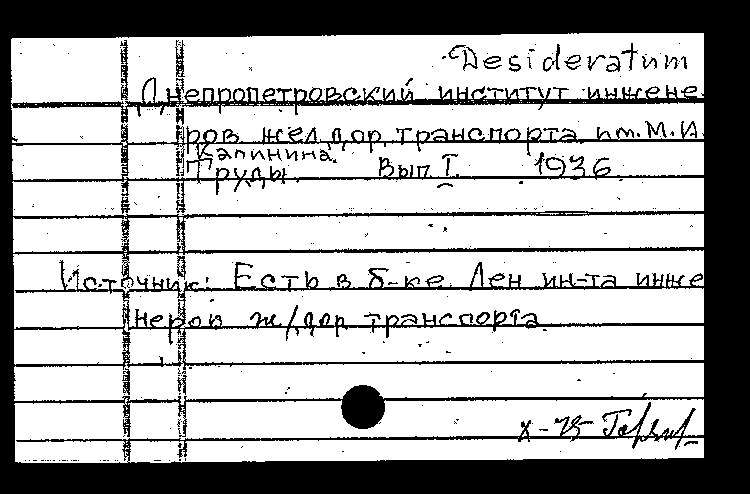 Desideratum
Днепропетровский институт инжене
ров жел.дор. транспорта им. М.И.
Калинина.
Труды. Вып. I. 1936.
Источник: Есть в б-ке Лен ин-та инже
неров ж/дор транспорта
X-75